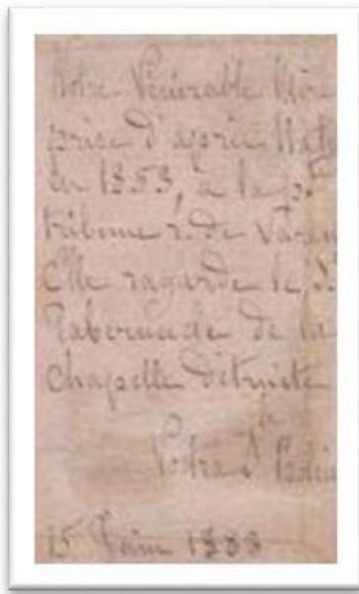 Notre Vénérable Mère
prise d'après
en 1853, à la
tribune r. de Varen
elle ragarde le
Tabernacle de la
chapelle détruite
à
15 Juin 1888